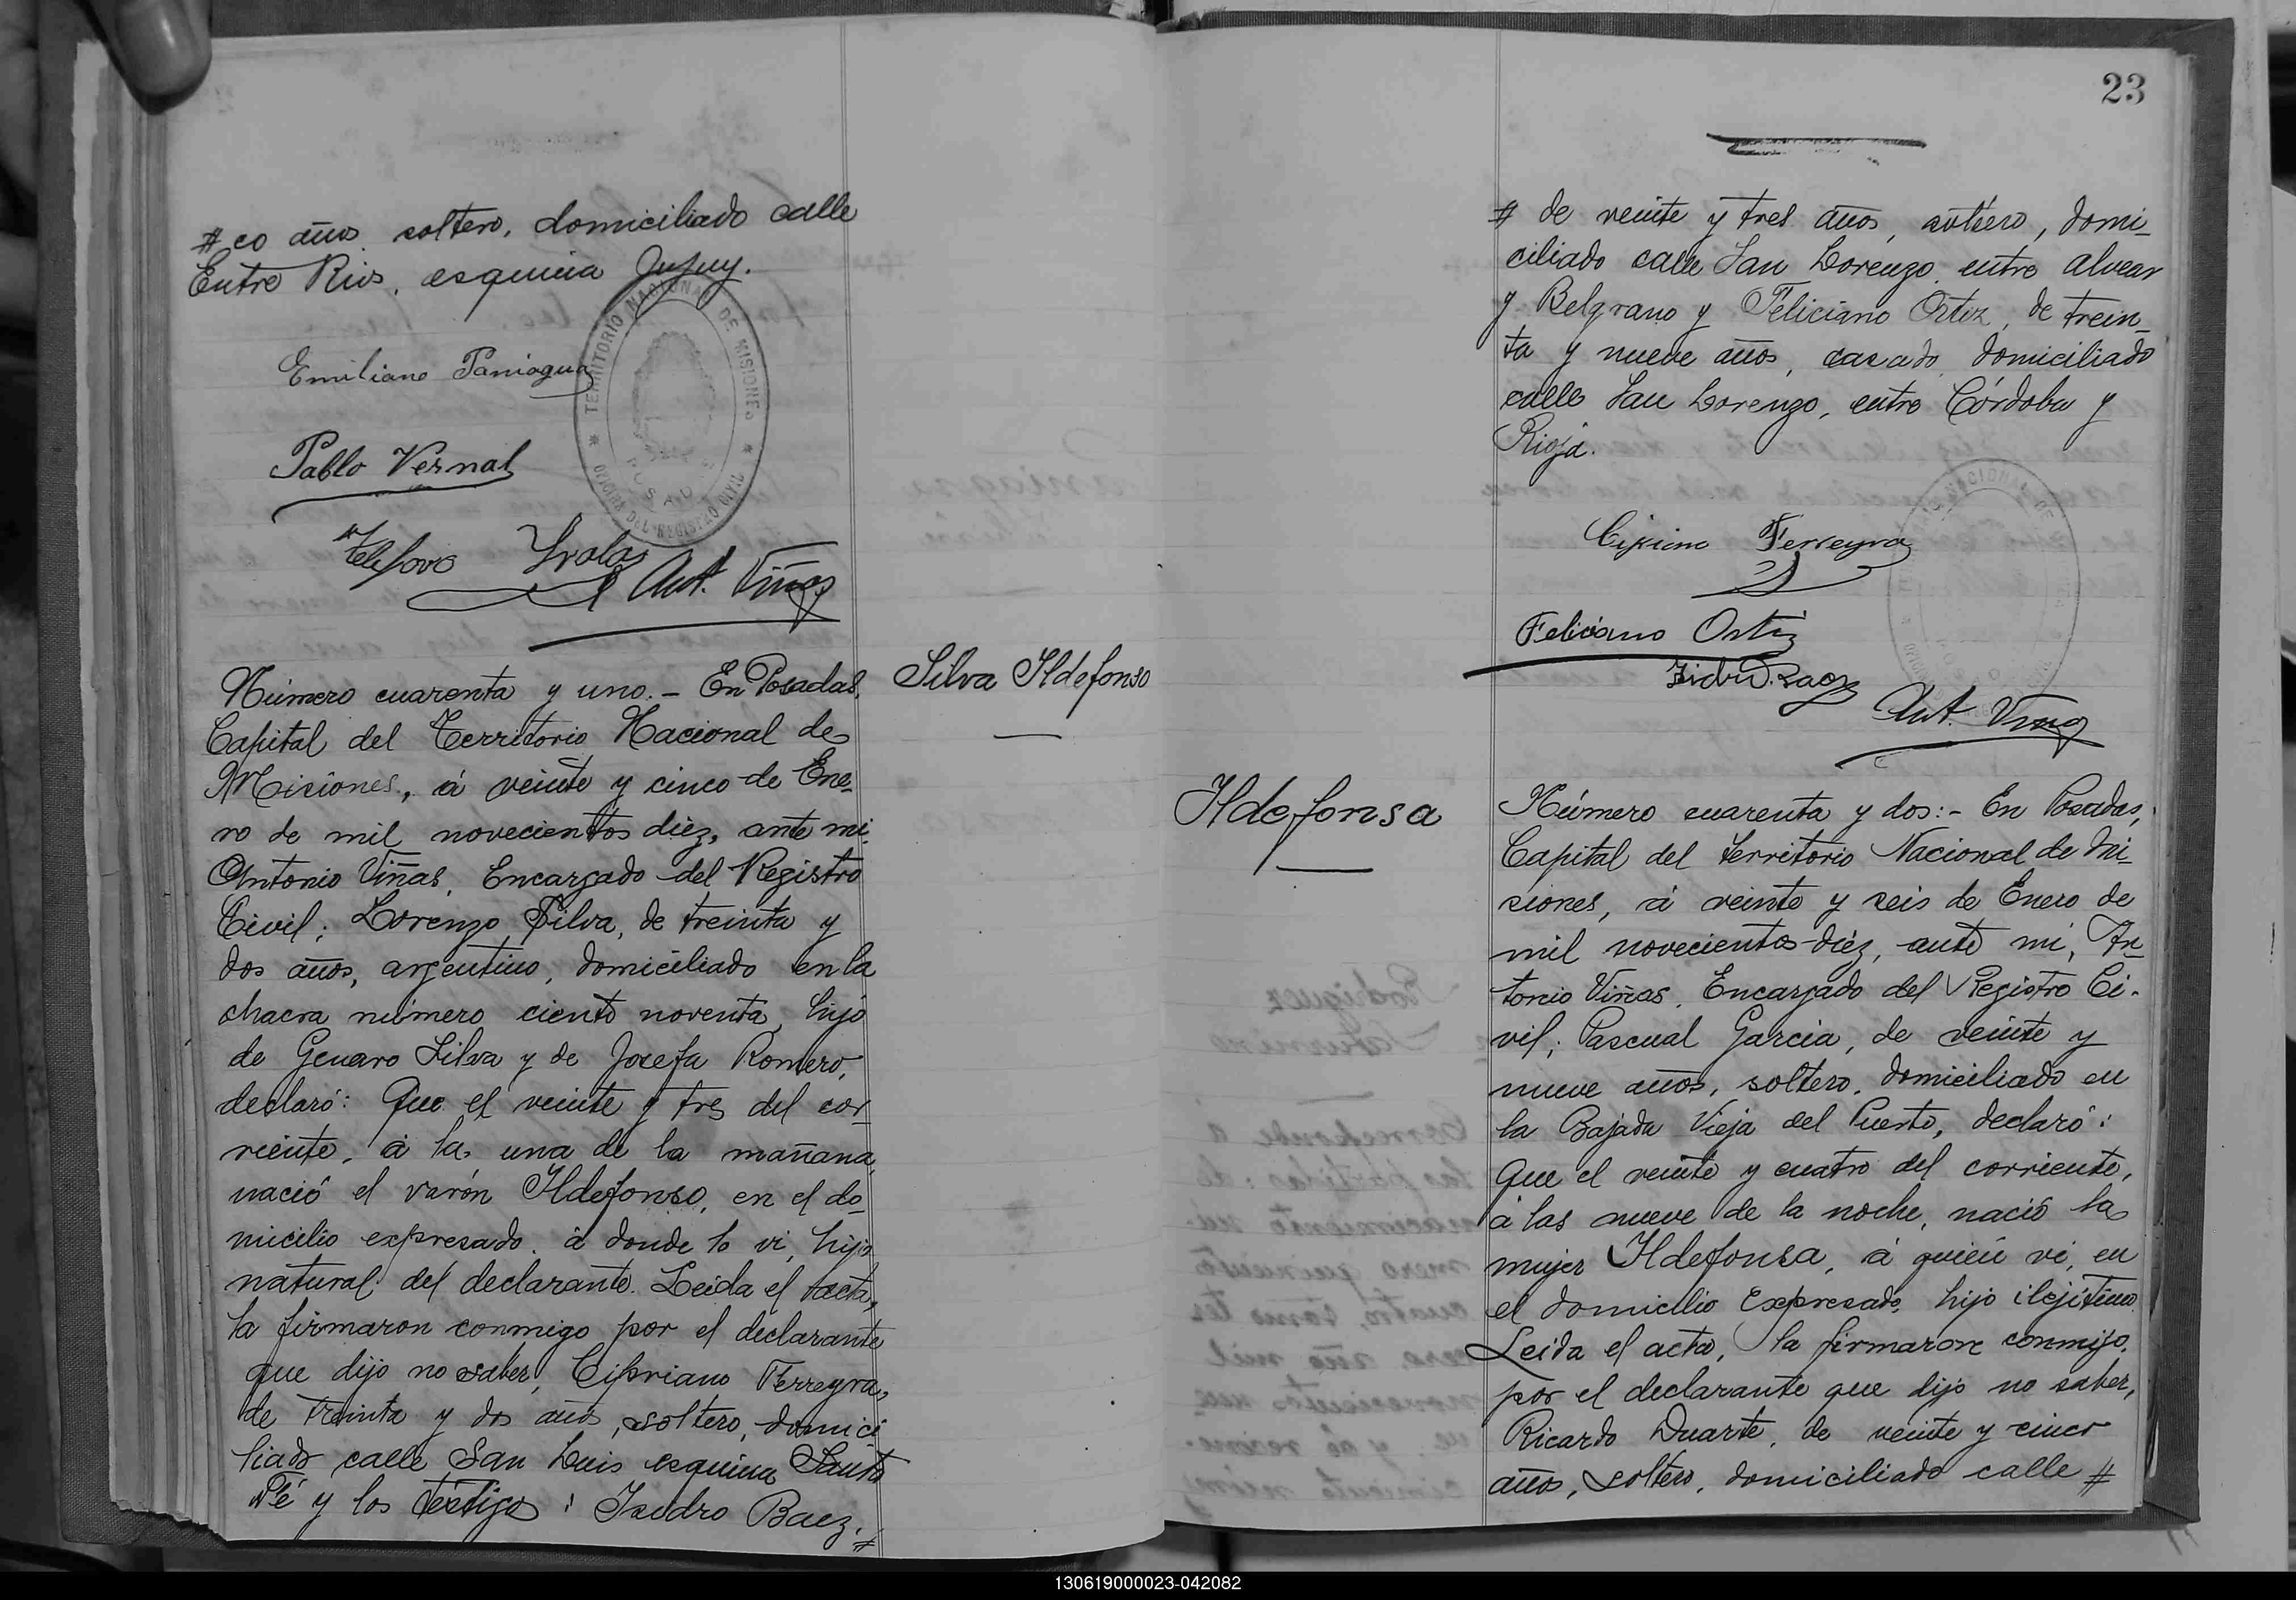 # co años, soltero, domiciliado calle
Entre Rios, esquina Jujuy.
TERRITORIO NACIONAL DE MISIONES
POSADAS
OFICINA DEL REGISTRO CIVIL
Emiliano Paniagua
Pablo Vernal
Ant. Viñas
Número cuarenta y uno. - En Posadas,
Capital del Territorio Nacional de
Misiones, á veinte y cinco de Ene-
ro de mil novecientos diez, ante mi
Antonio Viñas, Encargado del Registro
Civil; Lorenzo Silva, de treinta y
dos años, argentino, domiciliado en la
chacra número ciento noventa, hijo
de Genaro Silva y de Josefa Romero,
declaró: Que el veinte y tres del cor-
riente, á la una de la mañana,
nació el varón Ildefonso, en el do-
micilio expresado, á donde lo vi, hijo
natural del declarante. Leida el acta,
la firmaron conmigo por el declarante
que dijo no saber, Cipriano Ferreyra,
de treinta y dos años, soltero, domici
liado calle San Luis esquina Santa
Fé y los testigos: Isidro Baez, #
Silva Ildefonso
23
# de veinte y tres años, soltero, domi-
ciliado calle San Lorenzo entre Alvear
y Belgrano y Feliciano Ortiz, de trein-
ta y nueve años, casado, domiciliado
calle San Lorenzo, entre Córdoba y
Rioja.
Cipriano Ferreyra
Feliciano Ortiz
Isidro Baez
Ant. Viñas
Ildefonsa
Número cuarenta y dos:- En Posadas,
Capital del Territorio Nacional de Mi-
siones, á veinte y seis de Enero de
mil novecientos diéz, ante mi, An-
tonio Viñas, Encargado del Registro Ci-
vil; Pascual Garcia, de veinte y
nueve años, soltero, domiciliado en
la Bajada Vieja del Puerto, declaró:
Que el veinte y cuatro del corriente,
á las nueve de la noche, nació la
mujer Ildefonsa, á quien vi, en
el domicilio expresado, hijo ilejítimo.
Leida el acta, la firmaron conmigo,
por el declarante que dijo no saber,
Ricardo Duarte, de veinte y cinco
años, soltero, domiciliado calle #
130619000023-042082